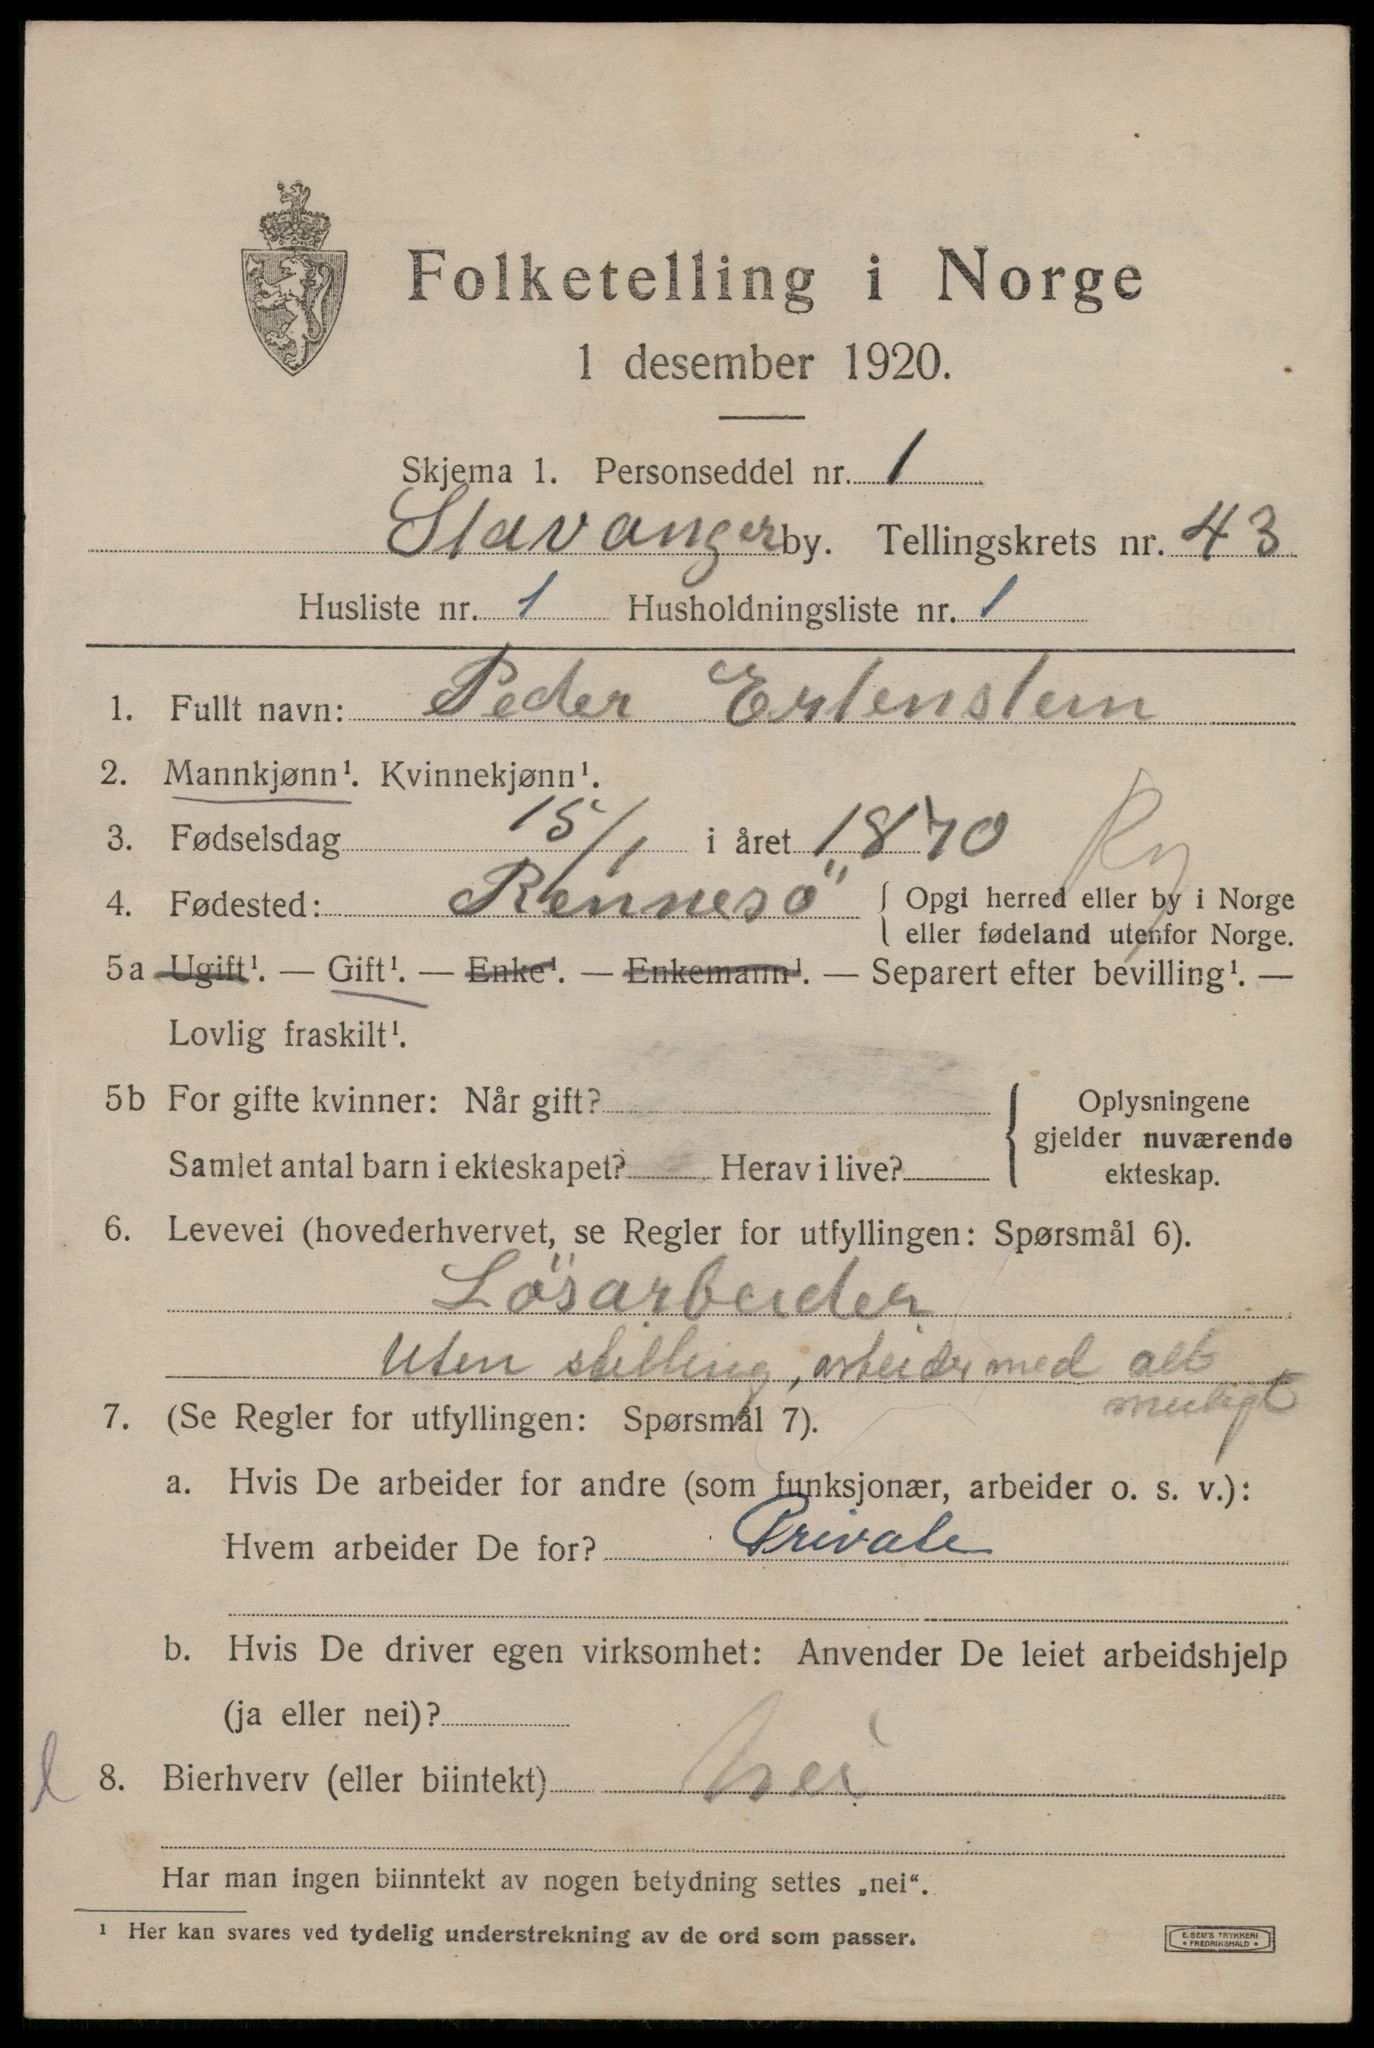 Folketelling i Norge
1 desember 1920.
Skjema 1. Personseddel nr. 1
Stavanger by. Tellingskrets nr. 43
Husliste nr. 1 Husholdningsliste nr. 1
1. Fullt navn: Peder Ertenstein
2. Mannkjønn¹. Kvinnekjønn¹.
3. Fødselsdag 15/1 i året 1870
Ry
4. Fødested: Rennesö { Opgi herred eller by i Norge
eller fødeland utenfor Norge.
5a Ugift¹. — Gift¹. — Enke¹. — Enkemann¹. — Separert efter bevilling¹. —
Lovlig fraskilt¹.
5b For gifte kvinner: Når gift?
Samlet antal barn i ekteskapet? Herav i live?
Oplysningene
gjelder nuværende
ekteskap.
6. Levevei (hovederhvervet, se Regler for utfyllingen: Spørsmål 6).
Lösarbeider
Uten stilling, arbeider med alt
muligt
7. (Se Regler for utfyllingen: Spørsmål 7).
a. Hvis De arbeider for andre (som funksjonær, arbeider o. s. v.):
Hvem arbeider De for? Private
b. Hvis De driver egen virksomhet: Anvender De leiet arbeidshjelp
(ja eller nei)?
8. Bierhverv (eller biintekt) Nei
Har man ingen biinntekt av nogen betydning settes „nei“.
¹ Her kan svares ved tydelig understrekning av de ord som passer.
E. SEM'S TRYKKERI
• FREDRIKSHALD •